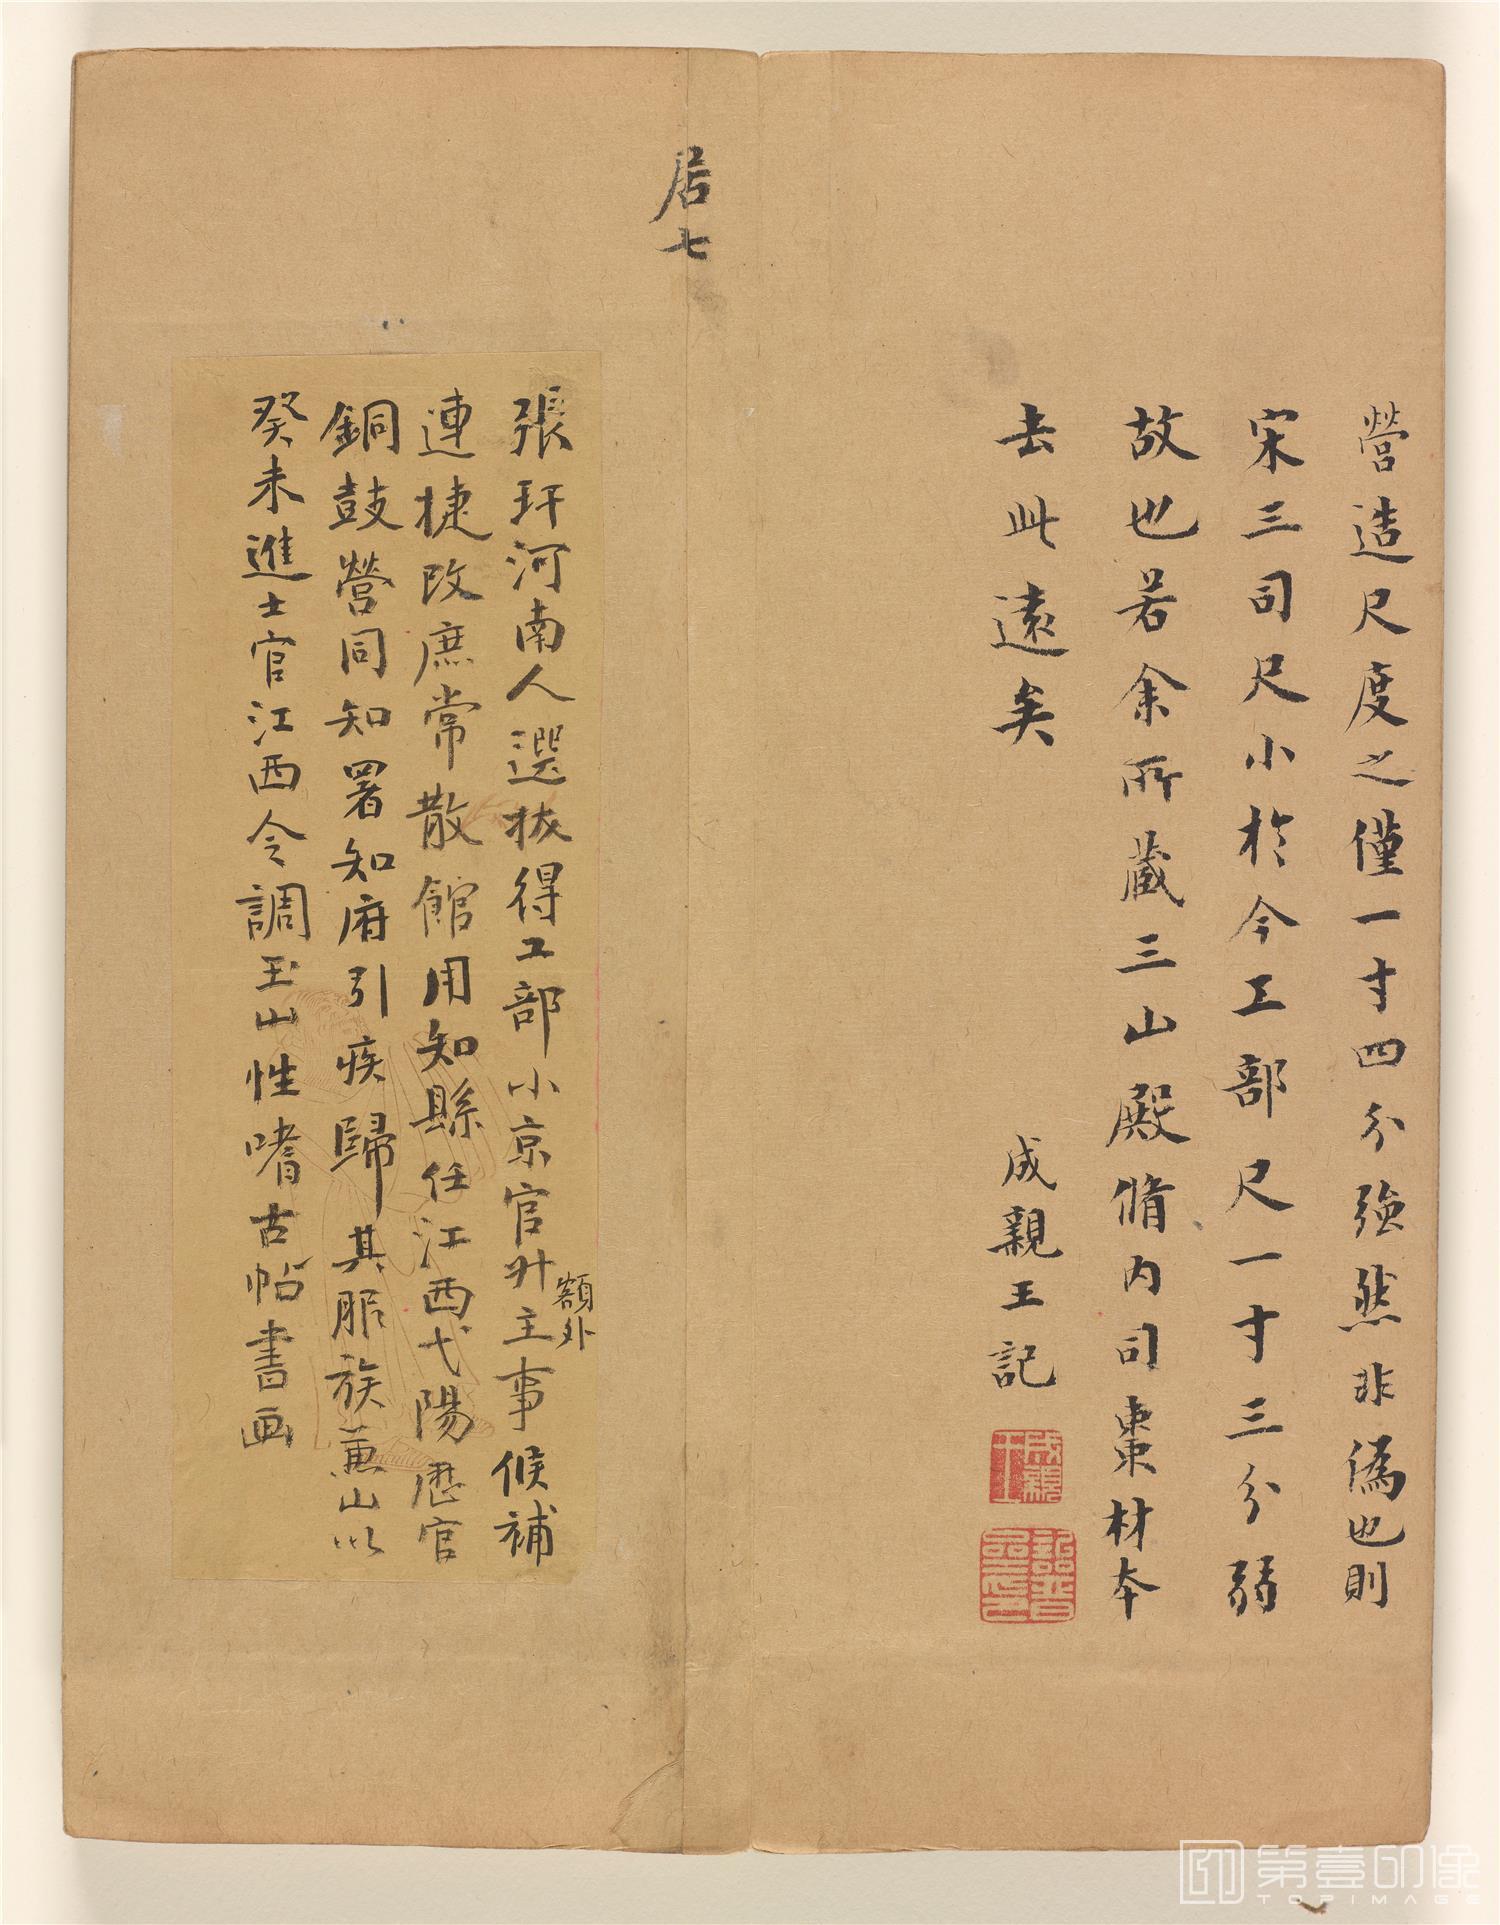 營造尺度之僅一寸四分強然非偽也則
宋三司尺小於今工部尺一寸三分弱
故也若余所藏三山殿脩内司棗材本
去此遠矣
成親王記
成親王
詒晉齋印
居七
張玕河南人選拔得工部小京官升額外主事候補
連捷改庶常散館用知縣任江西弋陽歷官
銅鼓營同知署知府引疾歸其服族蕙山以
癸未進士官江西令調玉山性嗜古帖書画
第壹印像
TOPIMAGE